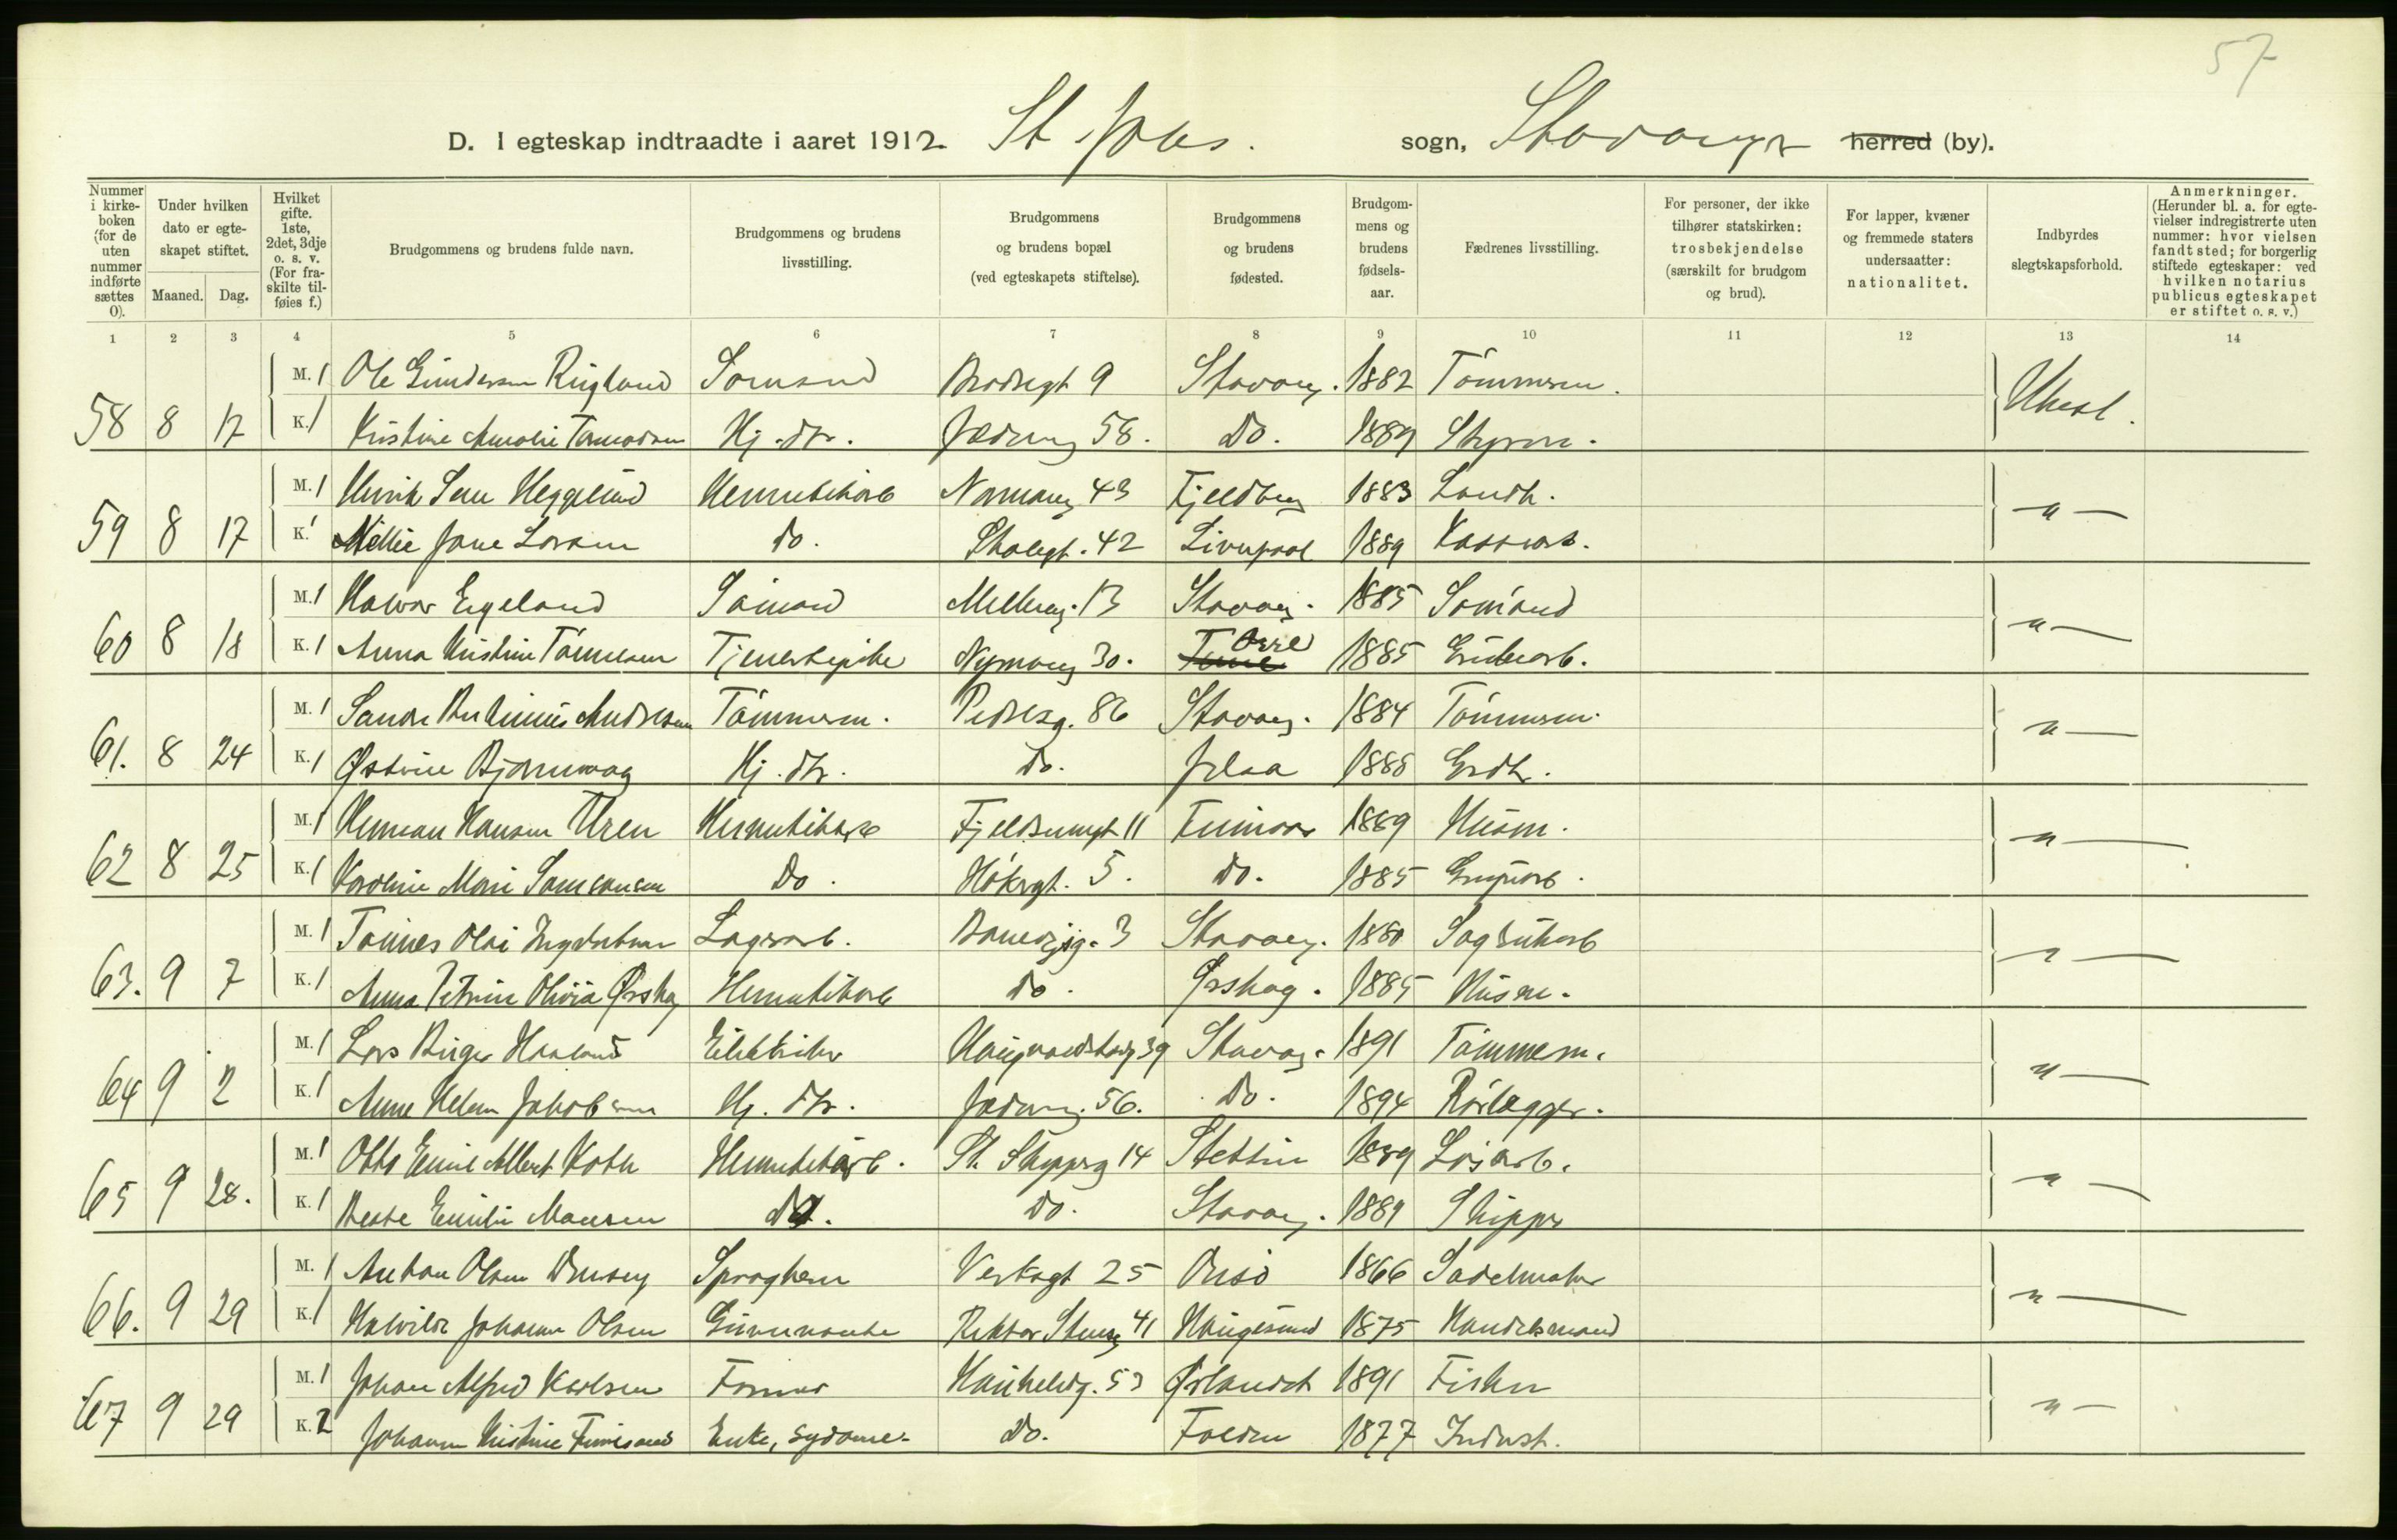 57
D. I egteskap indtraadte i aaret 1912. St Johs. sogn, Stavanger herred (by).
Nummer i kirkeboken (for de uten nummer indførte sættes 0).
Under hvilken dato er egteskapet stiftet.
Maaned. Dag.
Hvilket gifte. 1ste, 2det, 3dje o. s. v. (For fraskilte tilføies f.)
Brudgommens og brudens fulde navn.
Brudgommens og brudens livsstilling.
Brudgommens og brudens bopæl (ved egteskapets stiftelse).
Brudgommens og brudens fødested.
Brudgommens og brudens fødselsaar.
Fædrenes livsstilling.
For personer, der ikke tilhører statskirken: trosbekjendelse (særskilt for brudgom og brud).
For lapper, kvæner og fremmede staters undersaatter: nationalitet.
Indbyrdes slegtskapsforhold.
Anmerkninger. (Herunder bl. a. for egtevielser indregistrerte uten nummer: hvor vielsen fandt sted; for borgerlig stiftede egteskaper: ved hvilken notarius publicus egteskapet er stiftet o. s. v.)
1 2 3 4 5 6 7 8 9 10 11 12 13 14
M. 1 Ole Gundersen Rugland Sømand 9 Stavang. 1882 Tømmerm.
58 8 17 K. 1 Kristine Amalie Hj. dtr. Jædervg 56. do. 1889 Styrm. Ubesl.
M. 1 Henrik Heggelund Hermetikarb Normannsg 43 Fjeldberg 1883 Landh.
59 8 17 K. 1 Millie Jane Larsen do. 42 Liverpool 1889 -"-
M. 1 Halvor Eigeland Sømand 13 Stavang. 1885 Sømand
60 8 18 K. 1 Anna Kristine Tønnesen Tjenestepike Nymansg 30. Time Orre 1885 Grubearb. -"-
M. 1 Andresen Tømmerm. Pedersg. 86 Stavang. 1884 Tømmerm.
61. 8 24 K. 1 Østrine Bjørnevaag Hj. dtr. do. Jelsa 1888 Grdbr. -"-
M. 1 Herman Hansen Uren Hermetikarb 11 1889 Husm.
62 8 25 K. 1 Karoline Marie Samsonsen do. 5. do. 1885 -"-
M. 1 Tønnes Olai Ingebretsen Lagerarb. 3 Stavang. 1880 Sagbrukarb
63. 9 7 K. 1 Anna Petrine Olivia Ørskog Hermetikarb do. Ørskog. 1885 Husm. -"-
M. 1 Lars Birger Haaland Elektriker 39 Stavang. 1891 Tømmerm.
64 9 2 K. 1 Anne Helene Jakobsen Hj. dtr. Jædervg. 56. do. 1894 Rørlægger. -"-
M. 1 Otto Emil Albert Koth Hermetikarb. St. Skipperg 14 Stettin 1889 Løsarb.
65 9 28. K. 1 Berte Emilie Mausen do. do. Stavang. 1889 Skipper -"-
M. 1 Anton Olsen Sproglærer Verksgt 25 Onsø 1866 Sadelmaker
66. 9 29 K. 1 Halvilde Johanne Olsen Guvernante Rektor Steensg 41 Haugesund 1875 Handelsmand -"-
M. 1 Johan Alfred Karlsen Former Haukeligt. 53 Ørlandet 1891 Fisker
67 9 29 K. 2 Johanne Kristine Enke, sydame. do. Folden 1877 Inderst. -"-